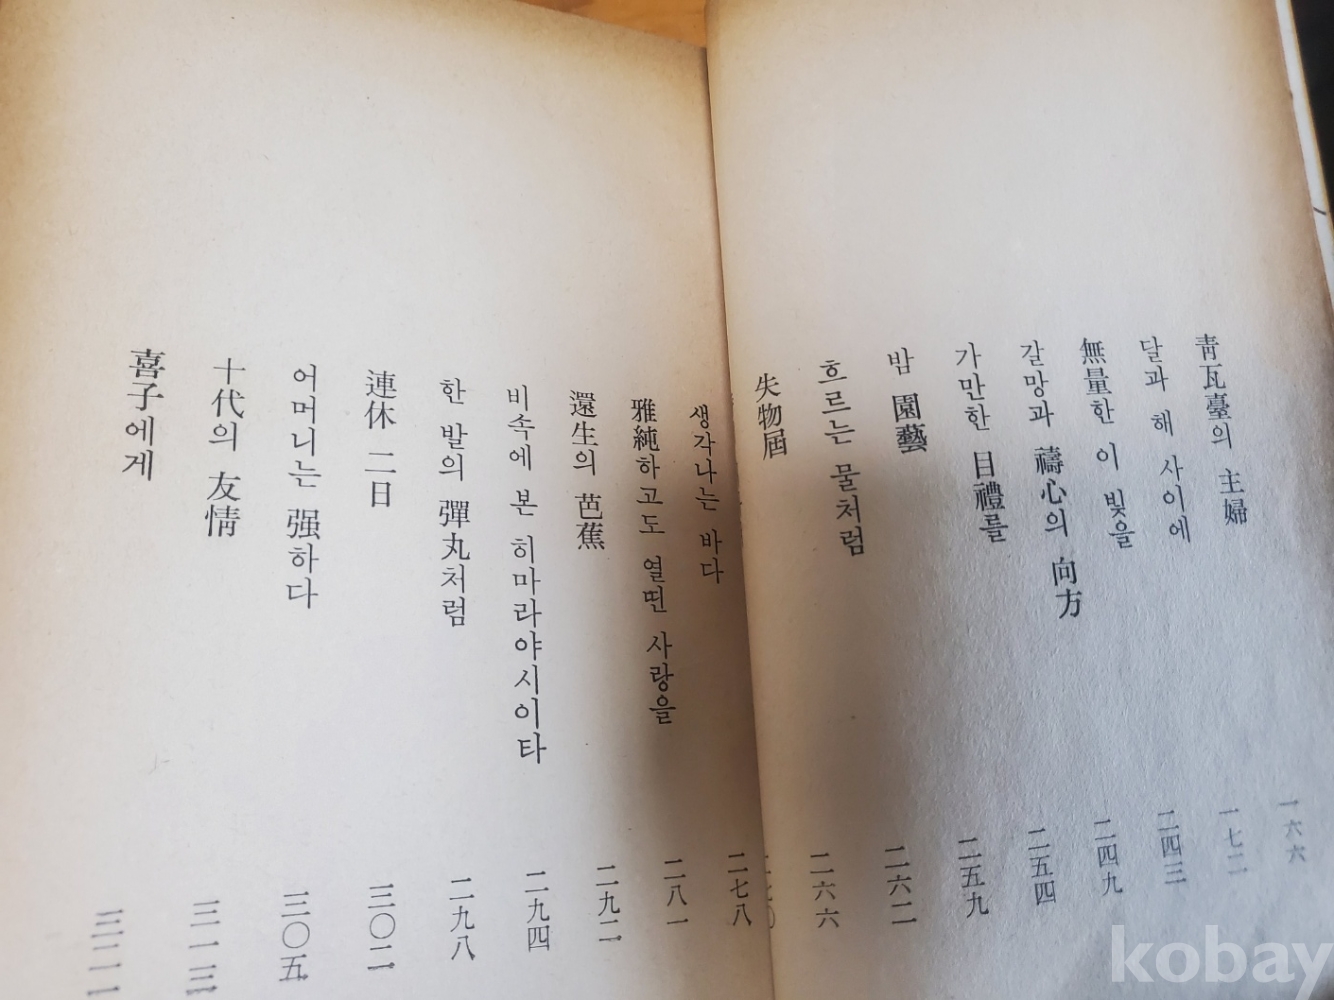 一六六
靑瓦臺의 主婦 一七二
달과 해 사이에 二四三
無量한 이 빛을 二四九
갈망과 禱心의 向方 二五四
가만한 目禮를 二五九
밤 園藝 二六二
흐르는 물처럼 二六六
失物屆
생각나는 바다 二七八
雅純하고도 열띤 사랑을 二八一
還生의 芭蕉 二九二
비속에 본 히마라야시이타 二九四
한 발의 彈丸처럼 二九八
連休 二日 三〇二
어머니는 强하다 三〇五
十代의 友情 三一三
喜子에게 三二一
kobay